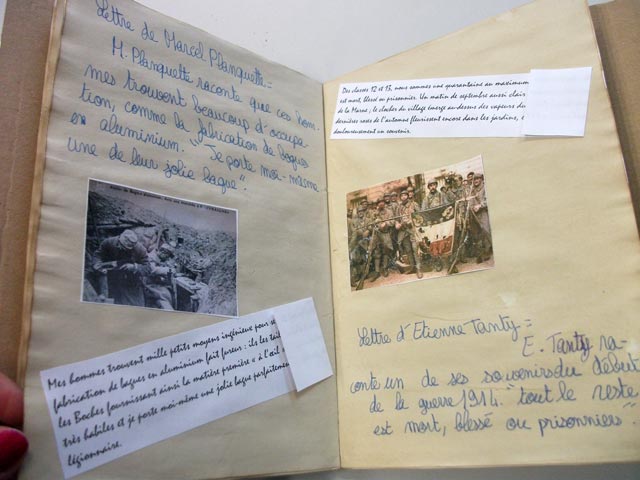 Lettre de Marcel Planquette=
M. Planquette raconte que ces hom-
mes trouvent beaucoup d'occupa-
tion, comme la fabrication de bagues
en aluminium. "Je porte moi-même
une de leur jolie bague".
Mes hommes trouvent mille petits moyens ingénieux pour se
fabrication de bagues en aluminium fait fureur : ils les tail
les Boches fournissant ainsi la matière première « à l'œil
très habiles et je porte moi-même une jolie bague parfaitement
légionnaire.
Des classes 12 et 13, nous sommes une quarantaine au maximum
est mort, blessé ou prisonnier. Un matin de septembre aussi clair
de la Marne ; le clocher du village émerge au-dessus des vapeurs du
dernières roses de l'automne fleurissent encore dans les jardins, e
douloureusement un souvenir.
Lettre d'Etienne Tanty=
E. Tanty ra-
conte un de ses souvenirs du début
de la guerre 1914. "tout le reste
est mort, blessé ou prisonniers".